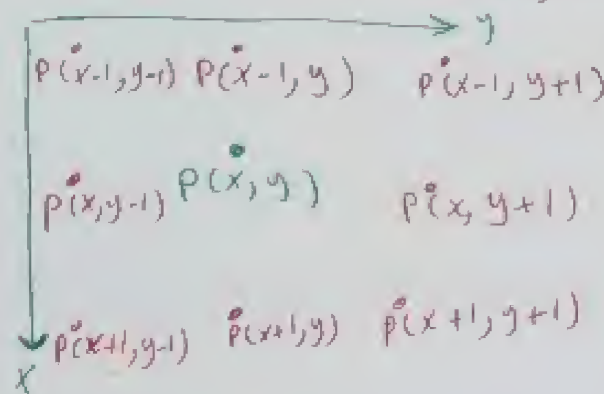 y
P(x-1,y-1) P(x-1,y) P(x-1, y+1)
P(x,y-1) P(x,y) P(x, y+1)
P(x+1,y-1) P(x+1,y) P(x+1,y+1)
X